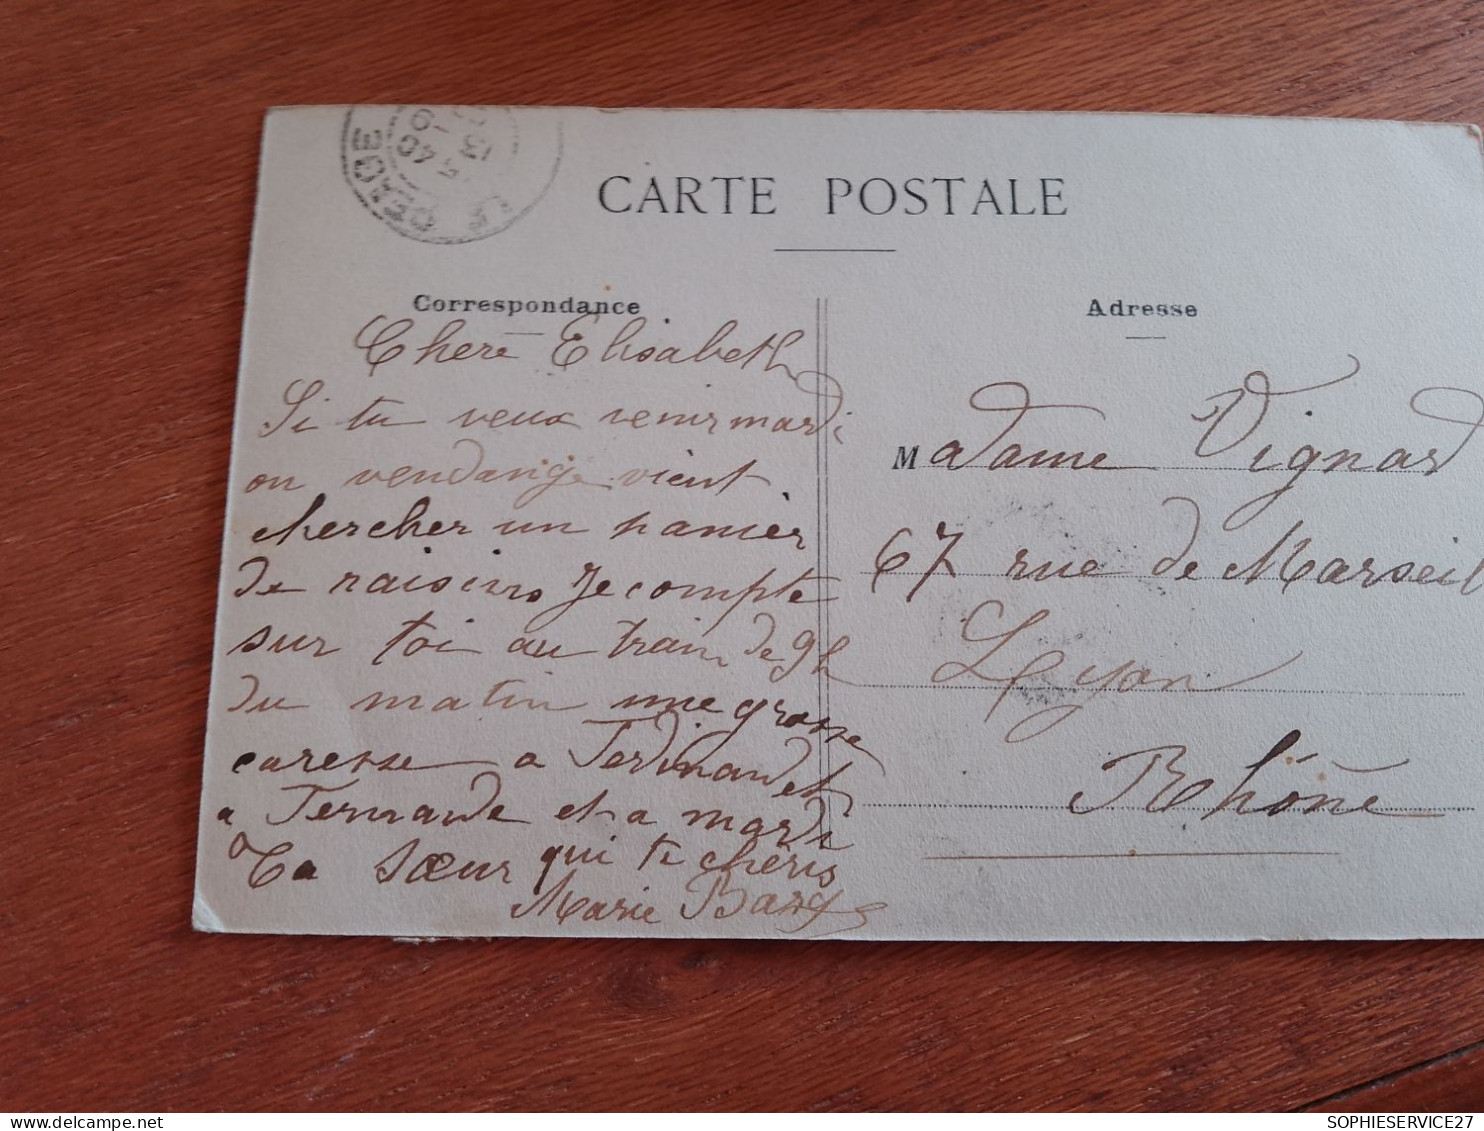 LE PEAGE
CARTE POSTALE
Correspondance
Chere Elisabeth
Si tu veux venir mardi
on vendange vient
chercher un panier
de raisins Je compte
sur toi au train de 9h
du matin une grosse
caresse a Ferdinand et
a Fernande et a mardi
Ta Sœur qui te cheris
Marie
Adresse
Madame Vignard
67 rue de Marseil
Lyon
Rhône
SOPHIESERVICE27